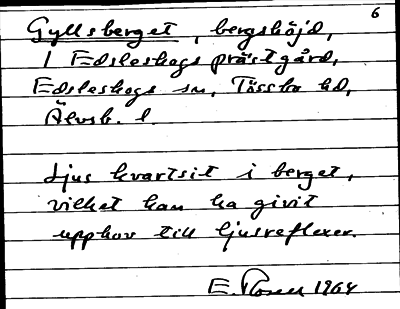 6
Gyllsberget, bergshöjd,
i Edsleskogs prästgård,
Edsleskogs sn, Tössbo hd,
Älvsb. l.
Ljus kvartsit i berget,
vilket kan ha givit
upphov till ljusreflexer.
E. Rosell 1964